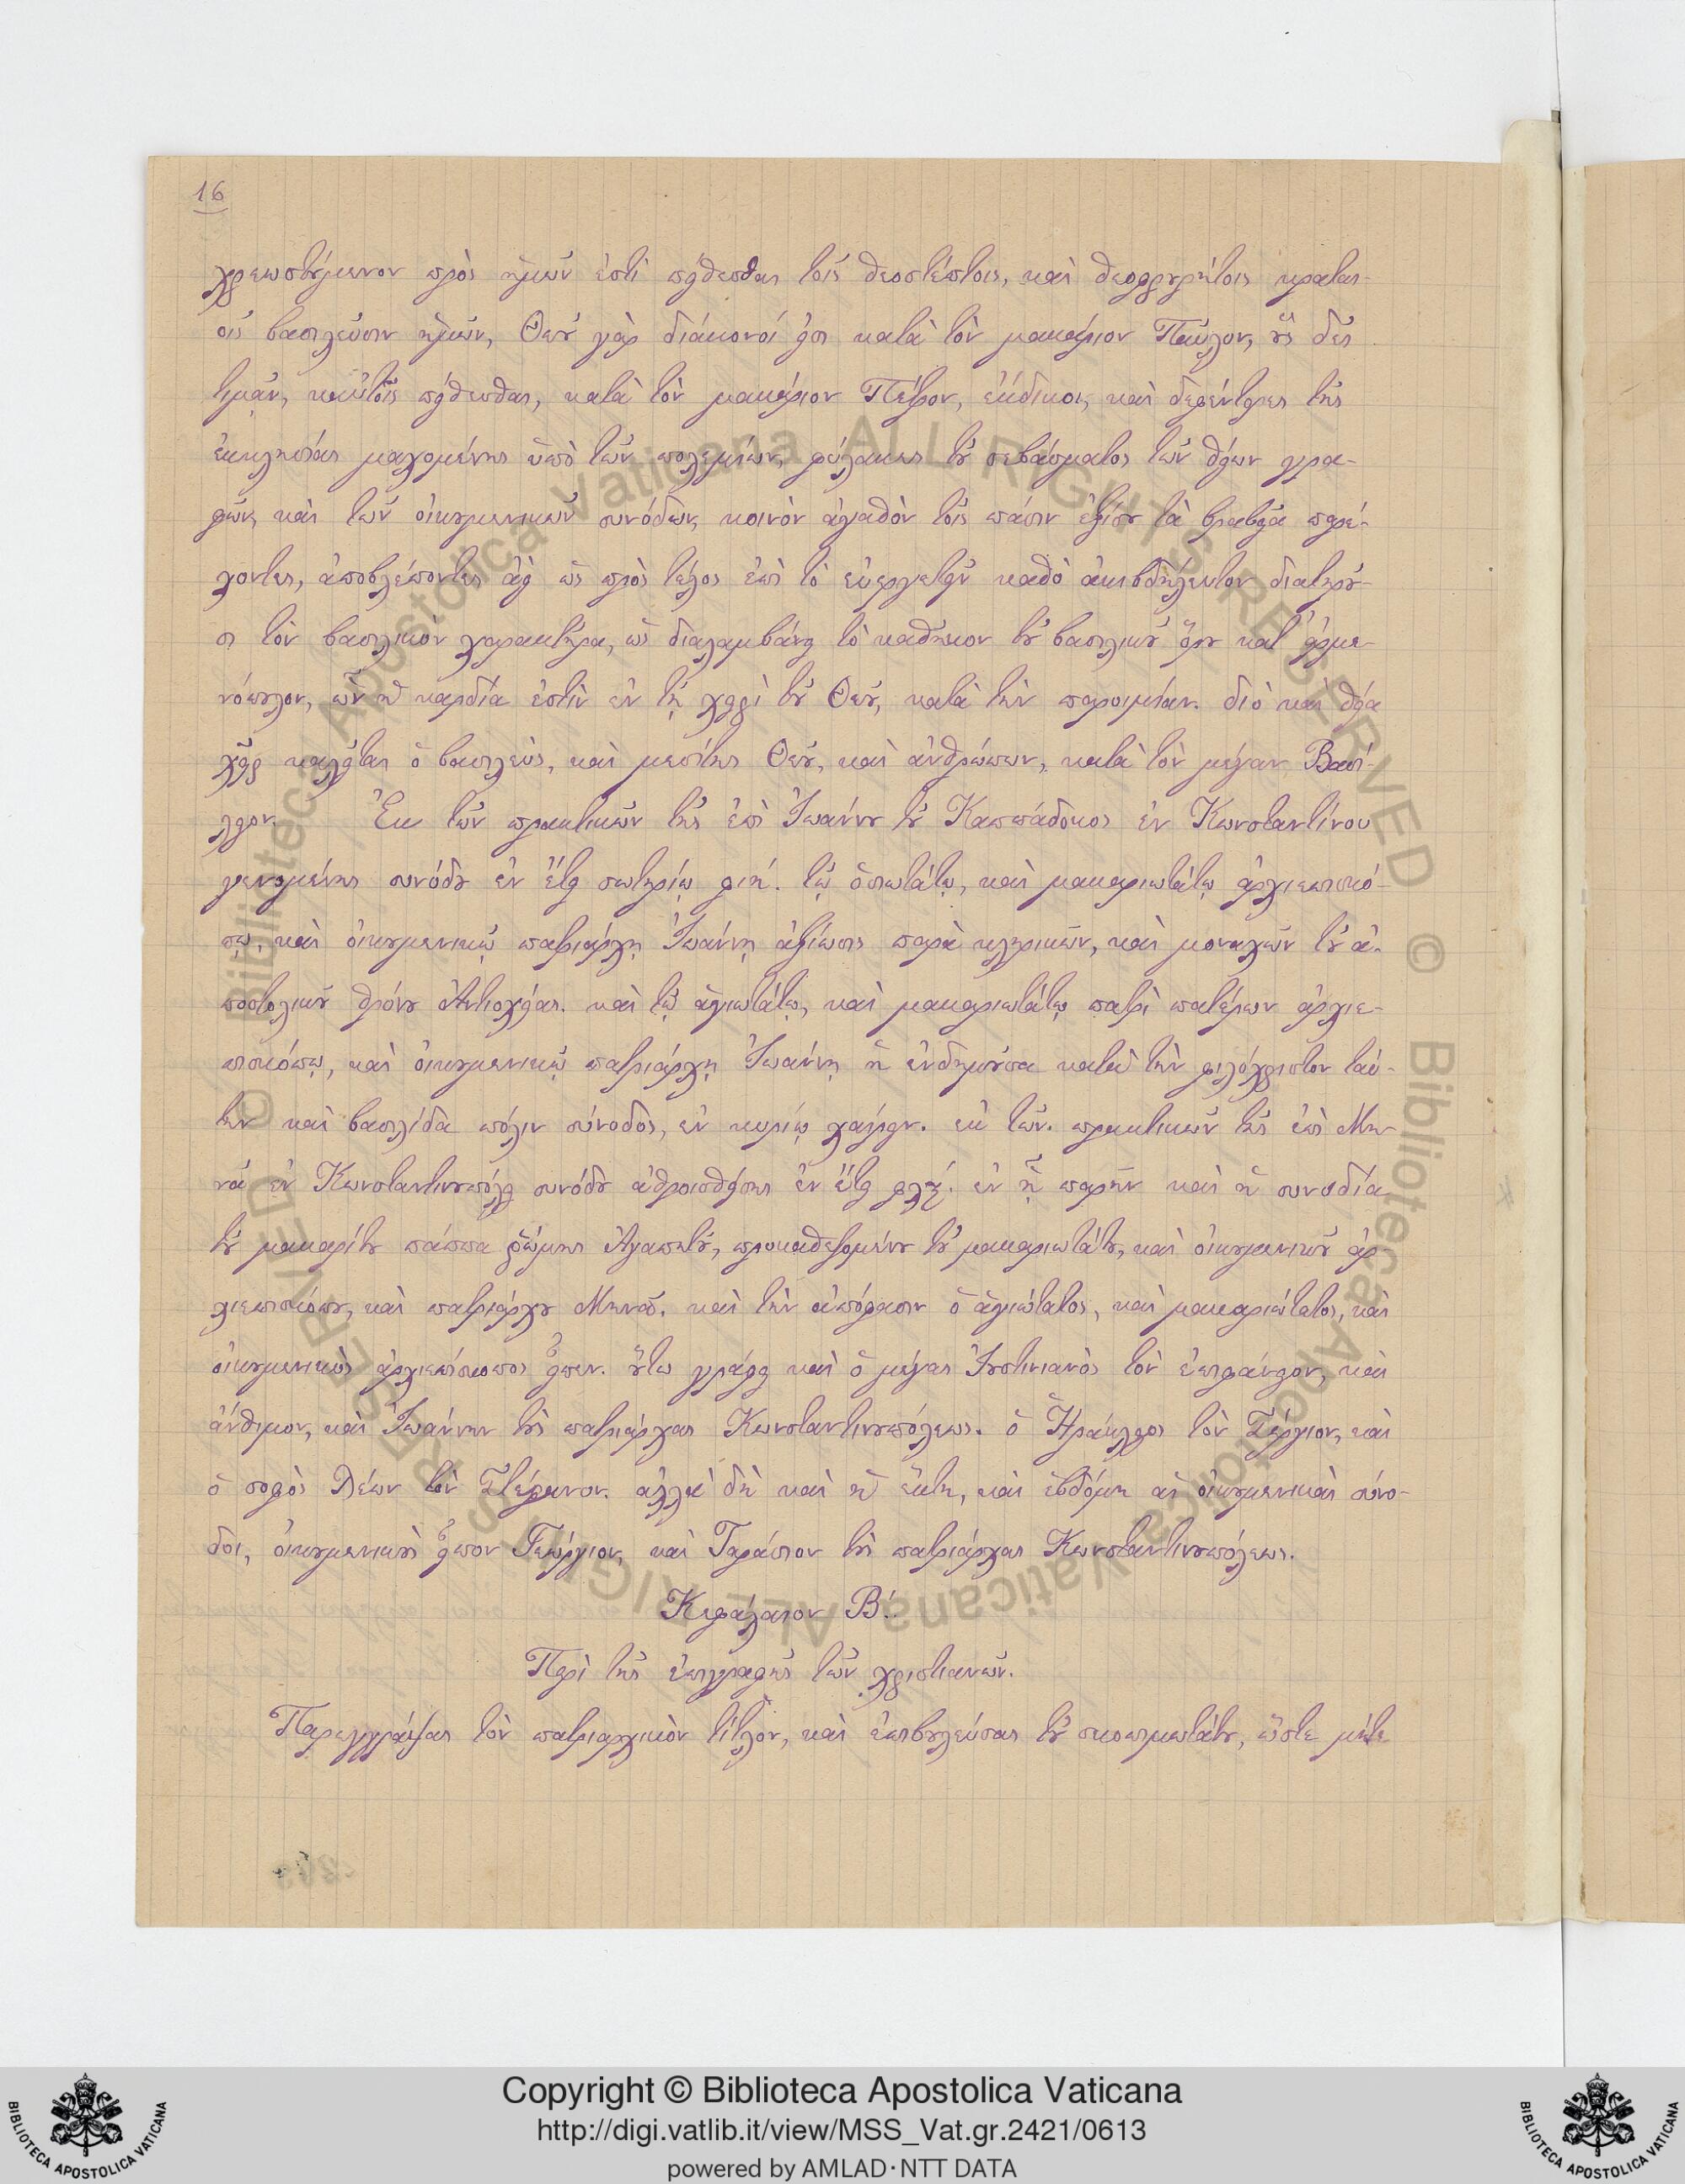 16
χρεωστούμενον πρὸς ἡμῶν ἐστὶ πείθεσθαι τοῖς θεοστέπτοις, καὶ θεοφρουρήτοις κραται-
οῖς βασιλεῦσιν ἡμῶν, Θεοῦ γὰρ διάκονοί εἰσι κατὰ τὸν μακάριον Παῦλον, οὓς δεῖ
τιμᾷν, καὐτοῖς πείθεσθαι, κατὰ τὸν μακάριον Πέτρον, ἐκδικοι, καὶ δεφένσορες τῆς
ἐκκλησίας μαχομένης ὑπὸ τῶν πολεμίων, φύλακες τοῦ σεβάσματος τῶν θείων γρα-
φῶν, καὶ τῶν οἰκουμενικῶν συνόδων, κοινὸν ἀγαθὸν τοῖς πάσιν ἐξίσου τὰ βραβεῖα παρέ-
χοντες, ἀποβλέποντες ἀεὶ ὡς πρὸς τέλος ἐπὶ τὸ εὐεργετεῖν καθὸ ἀκιβδήλευτον διατηροῦ-
σι τὸν βασιλικὸν χαρακτῆρα, ὡς διαλαμβάνει τὸ καθῆκον τοῦ βασιλικοῦ ὅρου κατ' ἁρμε-
νόπουλον, ὧν ἡ καρδία ἐστὶν ἐν τῇ χειρὶ τοῦ Θεοῦ, κατὰ τὴν παροιμίαν. διὸ καὶ θεία
χεὶρ καλεῖται ὁ βασιλεὺς, καὶ μεσίτης Θεοῦ, καὶ ἀνθρώπων, κατὰ τὸν μέγαν Βασί-
λειον. Ἐκ τῶν πρακτικῶν τῆς ἐπὶ Ἰωάννου τοῦ Καππάδοκος ἐν Κωνσταντίνου
γενομένης συνόδου ἐν ἔτει σωτηρίῳ φιη΄. τῷ ὁσιωτάτῳ, καὶ μακαριωτάτῳ ἀρχιεπισκό-
πῳ, καὶ οἰκουμενικῷ πατριάρχῃ Ἰωάννῃ ἀξίωσις παρὰ κληρικῶν, καὶ μοναχῶν τοῦ ἀ-
ποστολικοῦ θρόνου Ἀντιοχείας. καὶ τῷ ἁγιωτάτῳ, καὶ μακαριωτάτῳ πατρὶ πατέρων ἀρχιε-
πισκόπῳ, καὶ οἰκουμενικῷ πατριάρχῃ Ἰωάννῃ ἡ ἐνδημοῦσα κατὰ τὴν φιλόχριστον ταύ-
την καὶ βασιλίδα πόλιν σύνοδος, ἐν κυρίῳ χαίρειν. ἐκ τῶν. πρακτικῶν τῆς ἐπὶ Μη-
νᾶ ἐν Κωνσταντινουπόλει συνόδου ἀθροισθείσης ἐν ἔτει ἐν ᾗ παρῆν καὶ ἡ συνοδία
τοῦ μακαρίτου πάππα ῥώμης Ἀγαπητοῦ, προκαθεζομένου τοῦ μακαριωτάτου, καὶ οἰκουμενικοῦ ἀρ-
χιεπισκόπου, καὶ πατριάρχου Μηνᾶ. καὶ τὴν ἀπόφασιν ὁ ἁγιώτατος, καὶ μακαριώτατος, καὶ
οἰκουμενικὸς ἀρχιεπίσκοπος εἶπεν. οὕτω γράφει καὶ ὁ μέγας Ἰουστινιανὸς τὸν ἐπιφάνειον, καὶ
ἄνθιμον, καὶ Ἰωάννην τοὺς πατριάρχας Κωνσταντινουπόλεως. ὁ Ἡράκλειος τὸν Σέργιον, καὶ
ὁ σοφὸς Λέων τὸν Στέφανον. ἀλλὰ δὴ καὶ ἡ ἕκτη, καὶ ἑβδόμη αἱ οἰκουμενικαὶ σύνο-
δοι, οἰκουμενικοὺς εἶπον Γεώργιον, καὶ Ταράσιον τοὺς πατριάρχας Κωνσταντινουπόλεως.
Κεφάλαιον Β΄.
Περὶ τῆς ἐπιγραφῆς τῶν χριστιανῶν.
Παρεγγράψας τὸν πατριαρχικὸν τίτλον, καὶ ἐπιβουλεύσας τοῦ σκοπιμωτάτου, ὥστε μήτε
Copyright © Biblioteca Apostolica Vaticana
http://digi.vatlib.it/view/MSS_Vat.gr.2421/0613
powered by AMLAD·NTT DATA